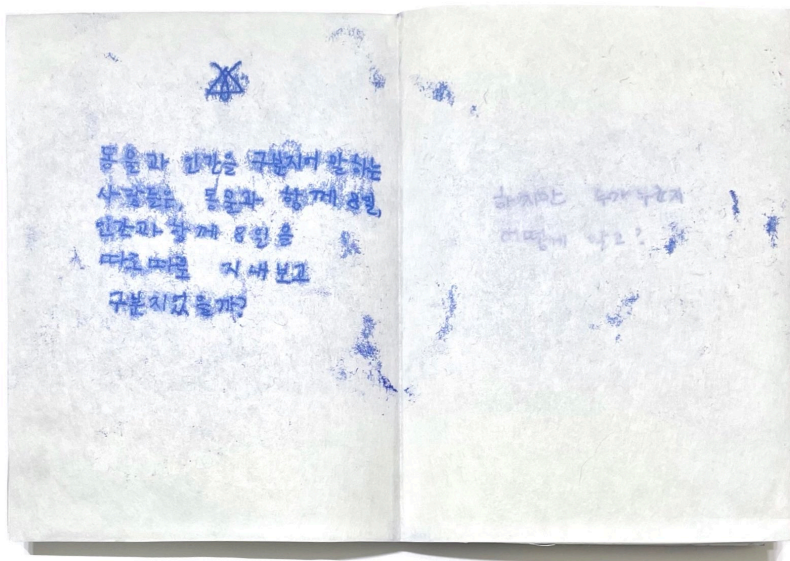 동물과 인간을 구분지어 말하는
사람들은, 동물과 함께 8일,
인간과 함께 8일을
따로따로 지내보고
구분지었을까?
하지만 누가 누군지
어떻게 알고?